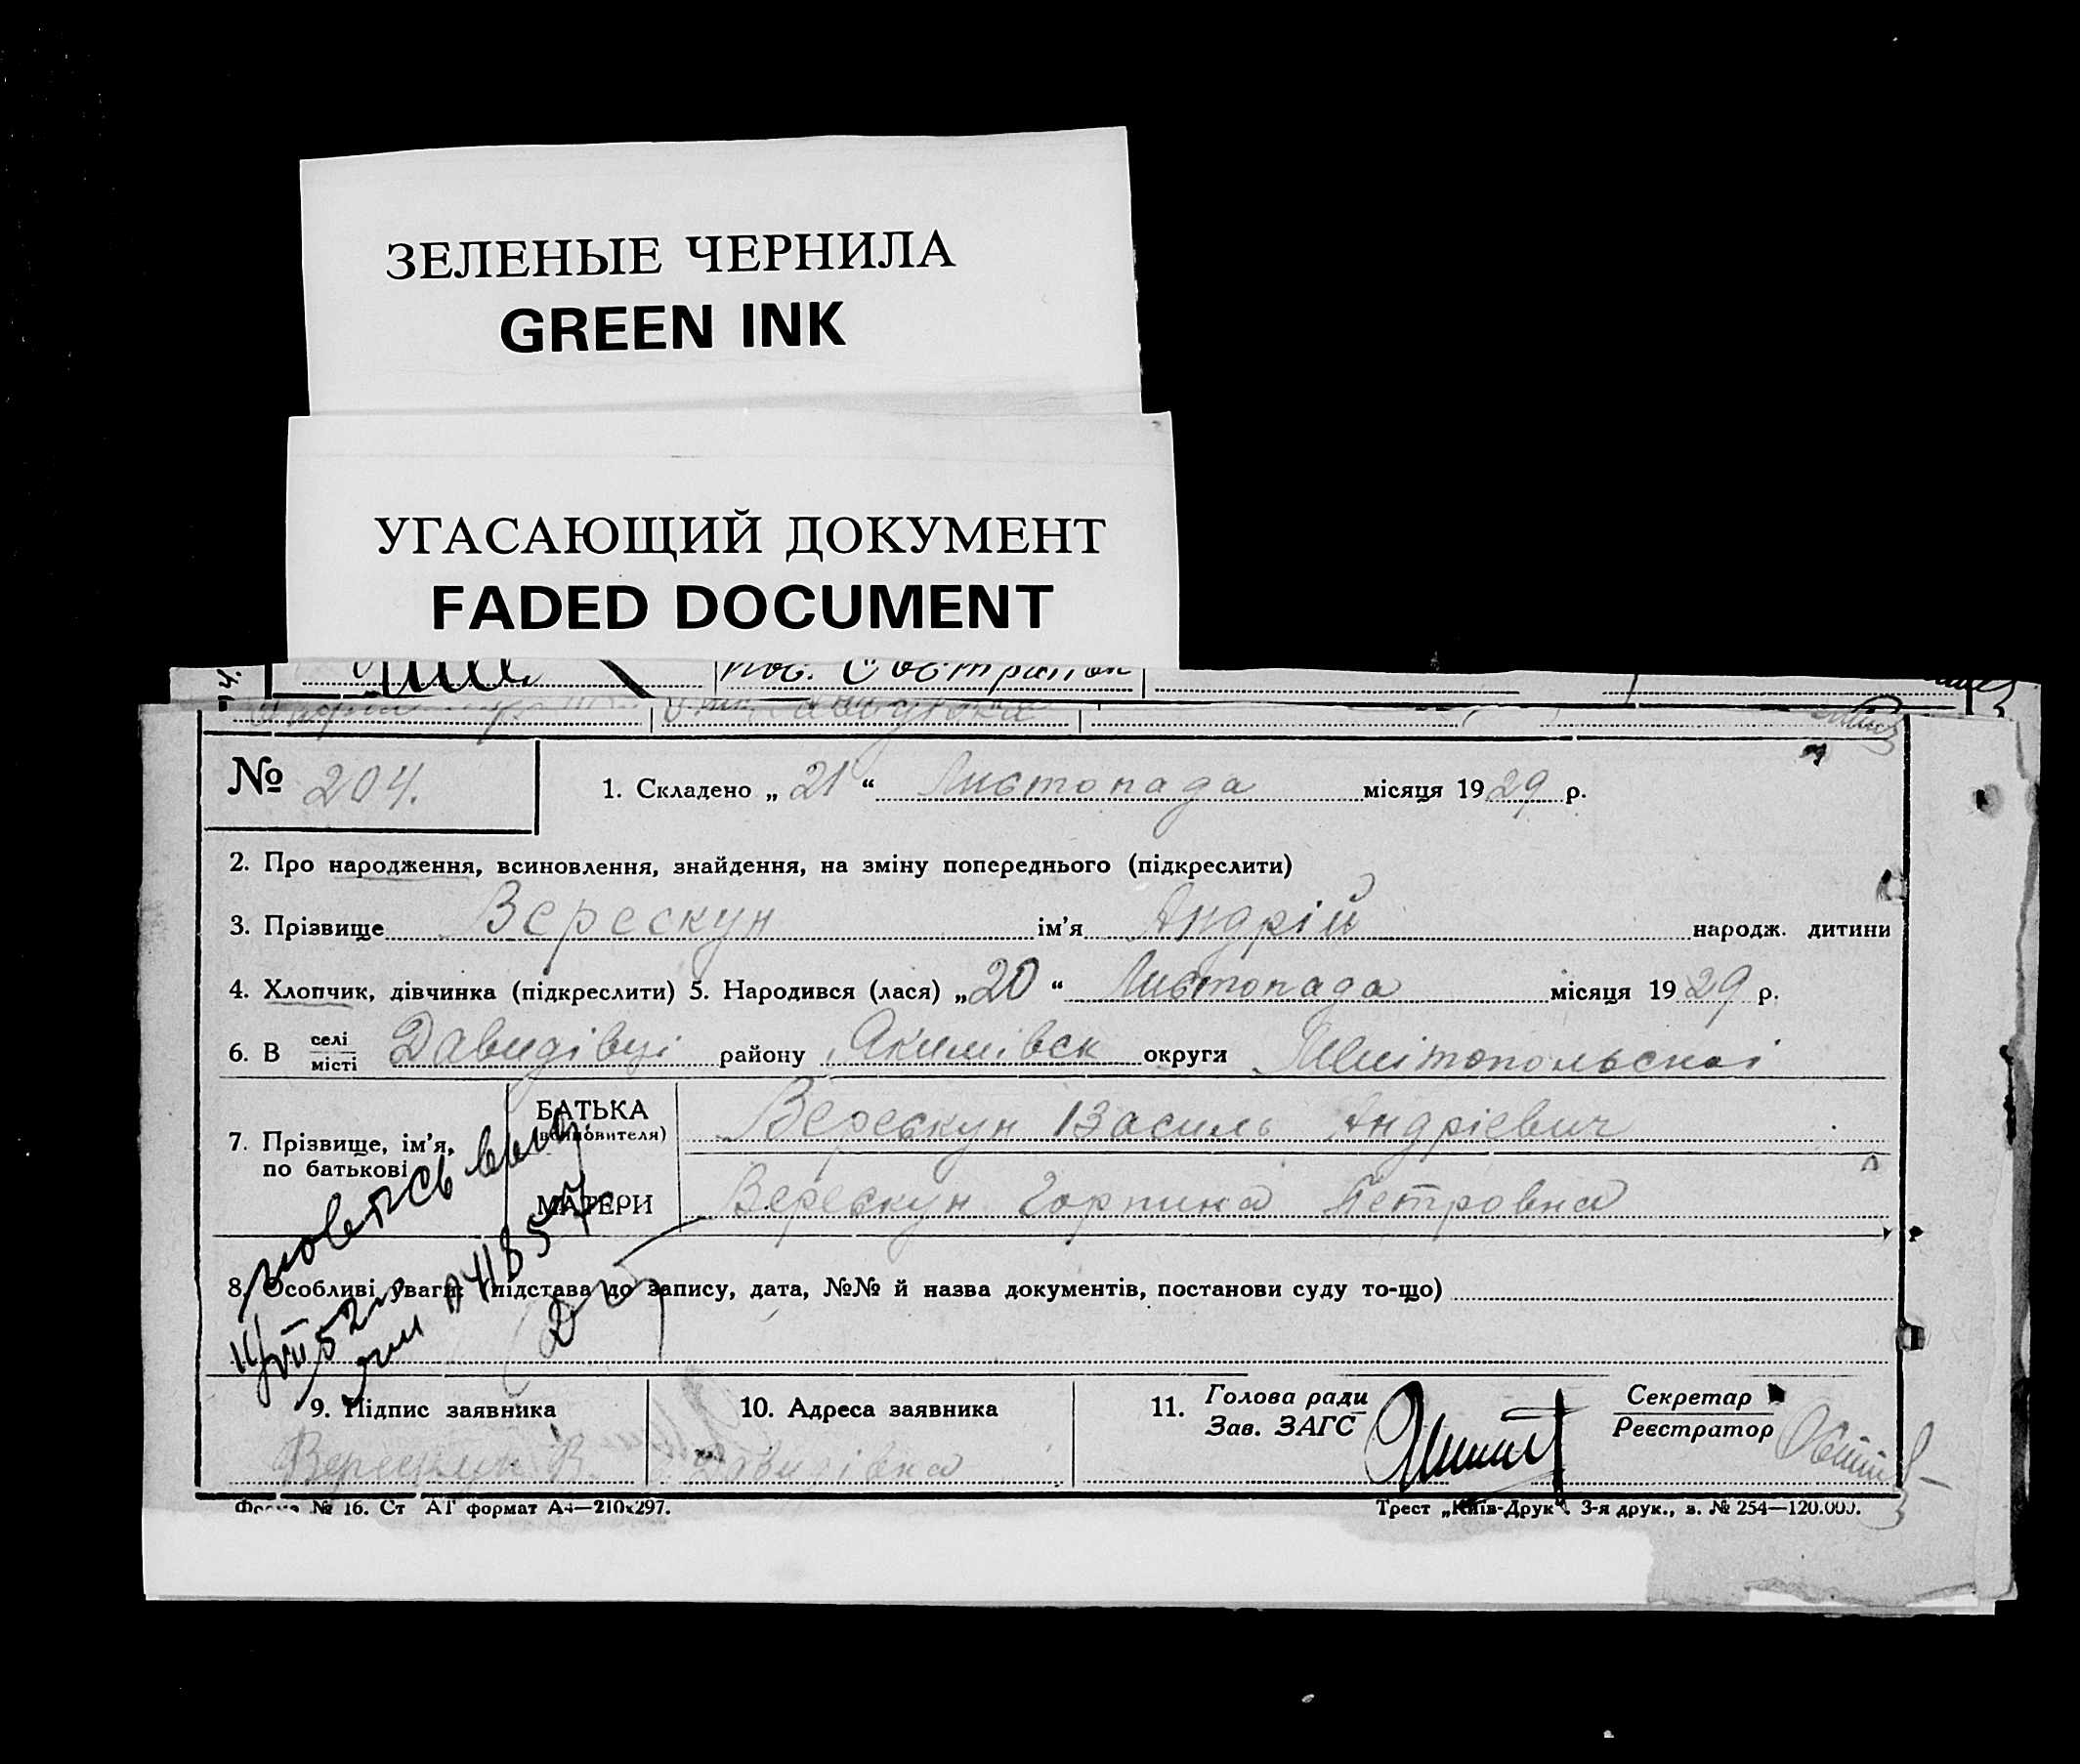 ЗЕЛЕНЫЕ ЧЕРНИЛА
GREEN INK
УГАСАЮЩИЙ ДОКУМЕНТ
FADED DOCUMENT
№ 204. 1. Складено „21“ Листопада місяця 1929 р.
2. Про народження, всиновлення, знайдення, на зміну попереднього (підкреслити)
3. Прізвище Верескун ім'я Андрій народж. дитини
4. Хлопчик, дівчинка (підкреслити) 5. Народився (лася) „20“ Листопада місяця 1929 р.
6. В селі місті Давидівці району Якимівск округи
7. Прізвище, ім'я, по батькові
БАТЬКА Верескун Василь Андріевич
МАТЕРИ Верескун Горпина Петровна
8. Особливі уваги: (підстава до запису, дата, №№ й назва документів, постанови суду то-що)
9. Підпис заявника 10. Адреса заявника 11. Голова ради Зав. ЗАГС Секретар Реєстратор
Верескун В. Давидівка
Форма № 16. Ст АТ формат А4—210х297. Трест „Київ-Друк“. 3-я друк., з. № 254—120.000.